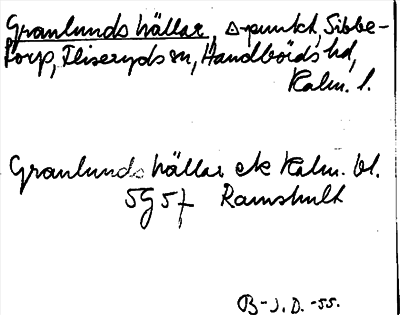 Granlunds hällar, △-punkt, Sibbe-
torp, Fliseryds sn, Handbörds hd,
Kalm. l.
Granlunds hällar ek Kalm. bl.
5G57 Ramshult
B-J.D.-55.